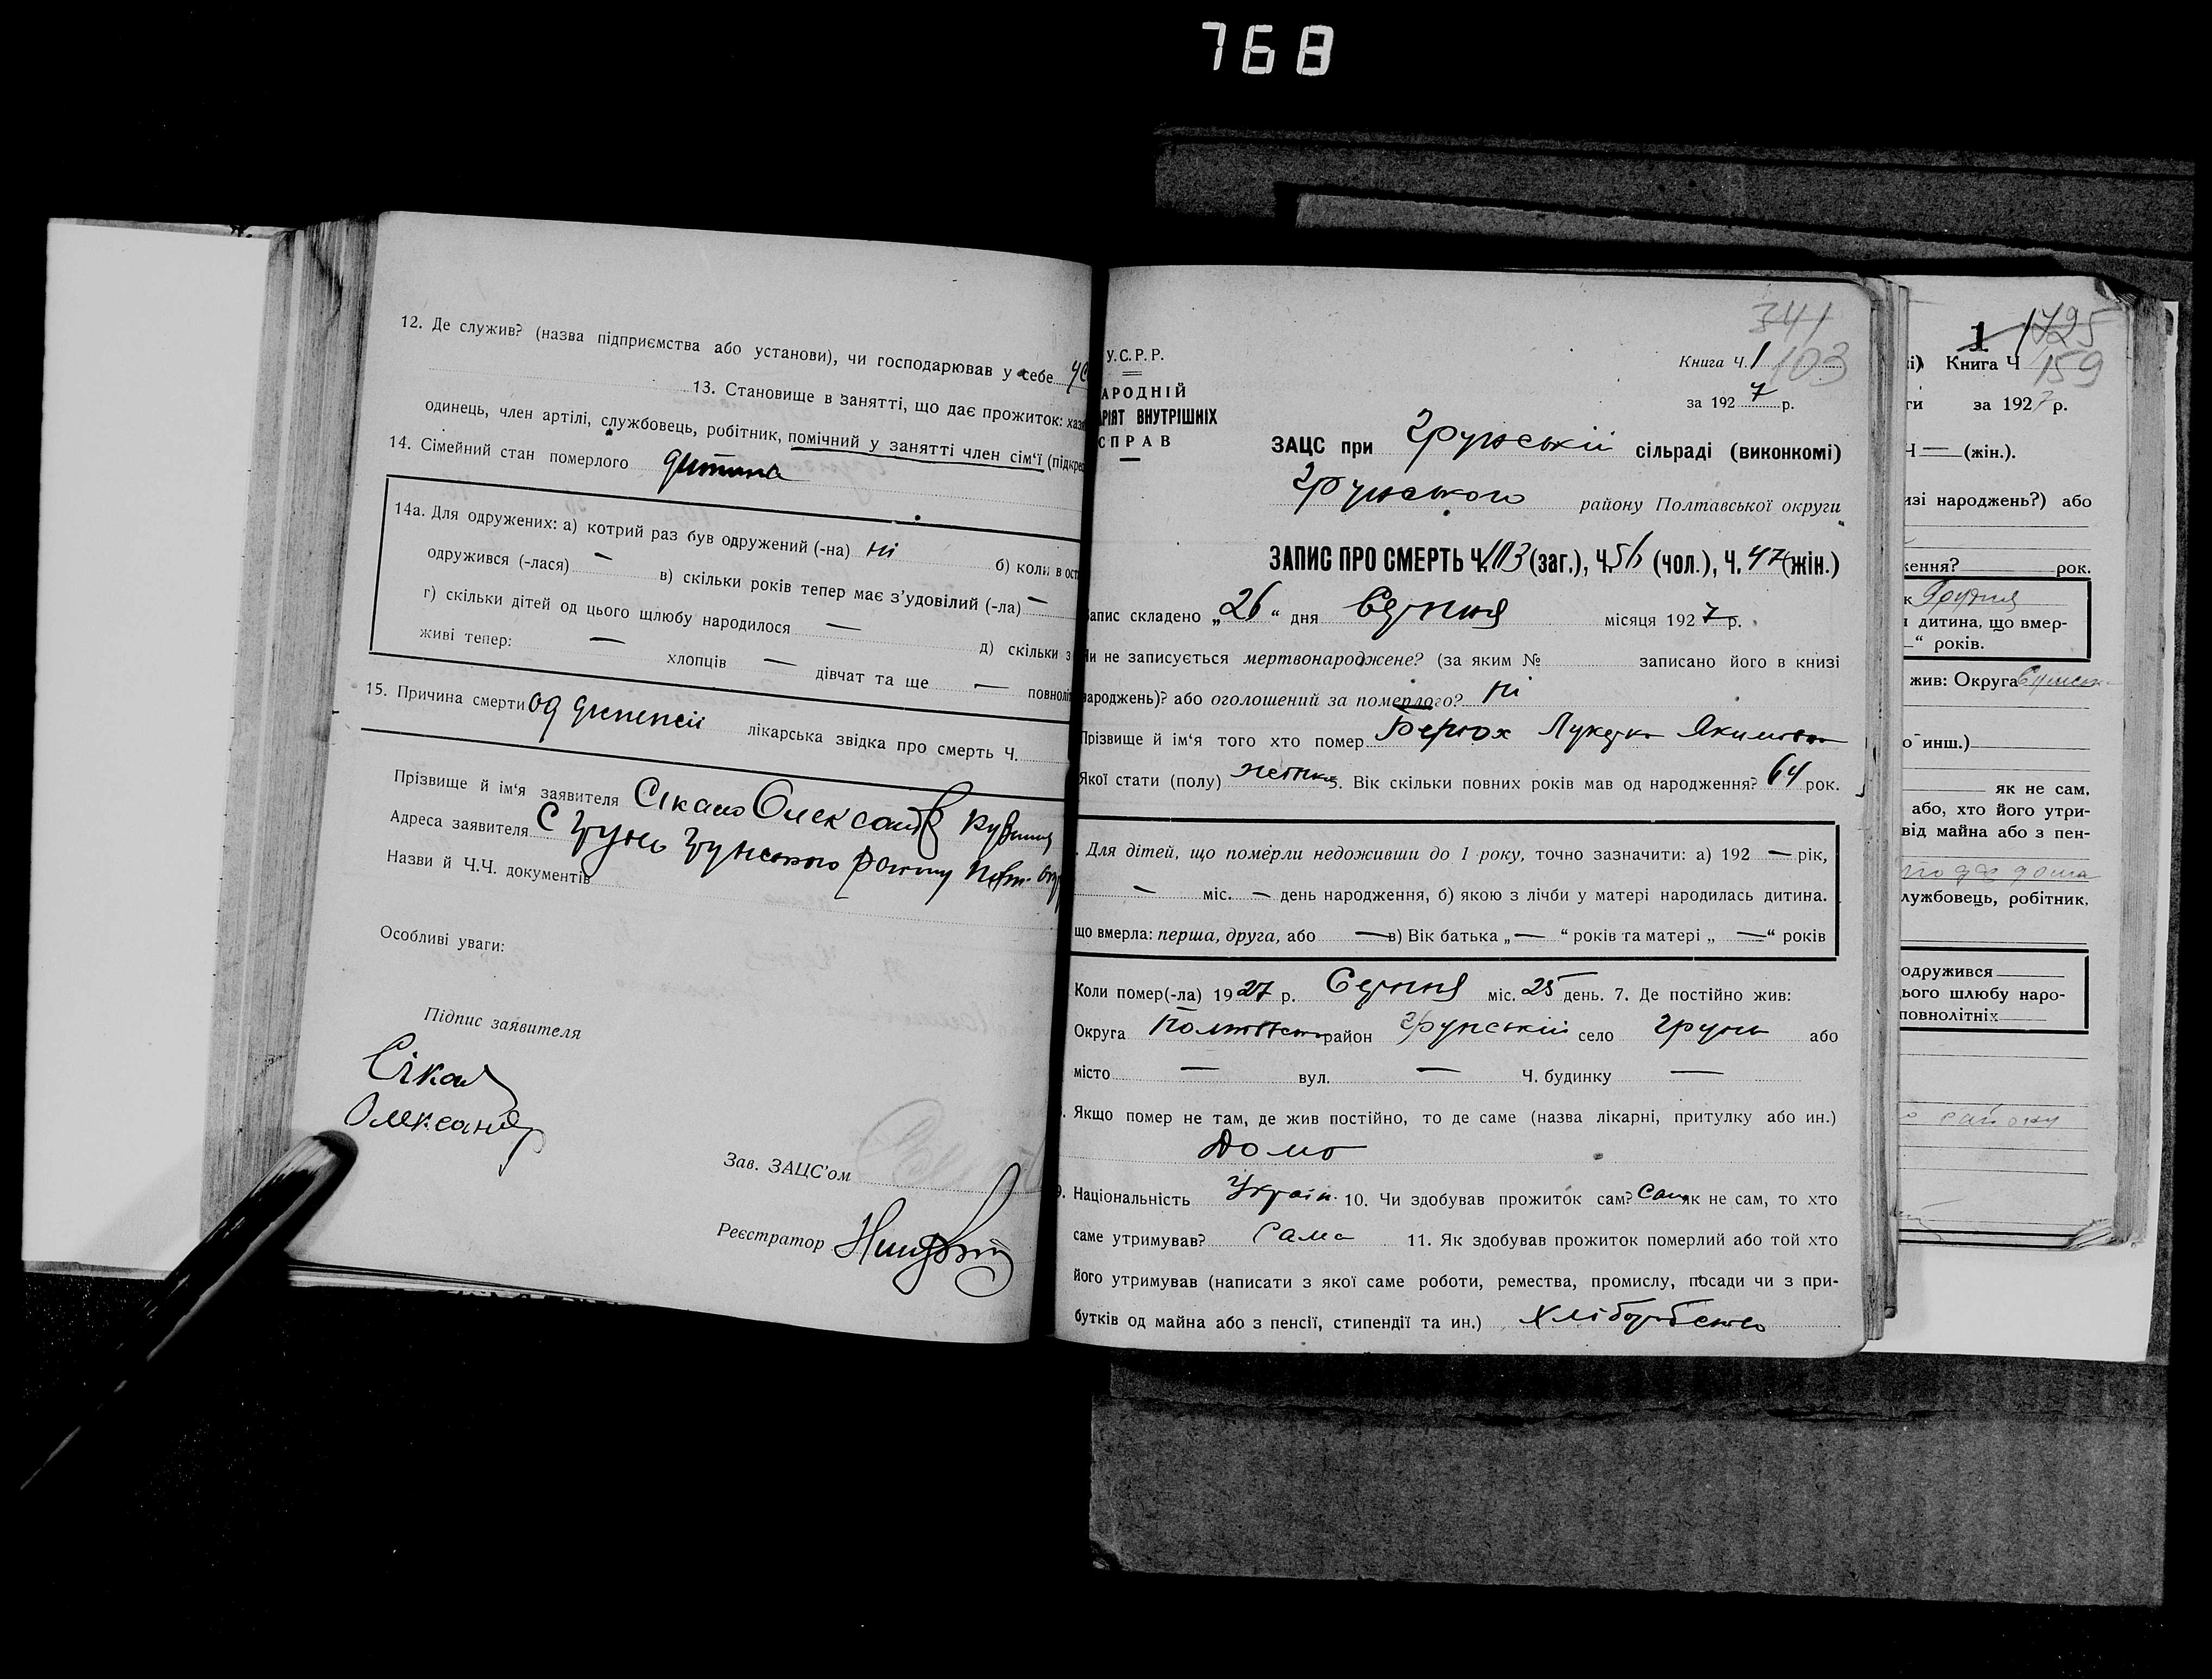 768
12. Де служив? (назва підприємства або установи), чи господарював у себе
13. Становище в занятті, що дає прожиток: хазя
одинець, член артілі, службовець, робітник, помічний у занятті член сім'ї (підкрес
14. Сімейний стан померлого дитина
14а. Для одружених: а) котрий раз був одружений (-на) ні б) коли в ост
одружився (-лася) — в) скільки років тепер має з'удовілий (-ла) —
г) скільки дітей од цього шлюбу народилося — д) скільки з
живі тепер: — хлопців — дівчат та ще — повноліт
15. Причина смерти од лікарська звідка про смерть Ч.
Прізвище й ім'я заявителя Сікало Олександр
Адреса заявителя С Грунь Грунського району Полт. окр
Назви й Ч.Ч. документів
Особливі уваги:
Підпис заявителя
Сікал
Олександр
Зав. ЗАЦС'ом
Реєстратор
341
У.С.Р.Р.
Книга Ч. 1 103
АРОДНІЙ
РІЯТ ВНУТРІШНІХ
СПРАВ
за 1927 р.
ЗАЦС при Грунській сільраді (виконкомі)
Грунського району Полтавської округи
ЗАПИС ПРО СМЕРТЬ Ч. 103 (заг.), Ч. 56 (чол.), Ч. 47 (жін.)
Запис складено „26“ дня Серпня місяця 1927 р.
Чи не записується мертвонароджене? (за яким № записано його в книзі
народжень)? або оголошений за померлого? Ні
Прізвище й ім'я того хто помер Якимовна
Якої стати (полу) жіноча 5. Вік скільки повних років мав од народження? 64 рок.
. Для дітей, що померли недоживши до 1 року, точно зазначити: а) 192 — рік,
— міс. — день народження, б) якою з лічби у матері народилась дитина.
що вмерла: перша, друга, або — в) Вік батька „—“ років та матері „—“ років
Коли помер(-ла) 1927 р. Серпня міс. 25 день. 7. Де постійно жив:
Округа Полтавськ район Грунський село Грунь або
місто — вул. — Ч. будинку —
. Якщо помер не там, де жив постійно, то де саме (назва лікарні, притулку або ин.)
Дома
9. Національність Україн. 10. Чи здобував прожиток сам? Сам як не сам, то хто
саме утримував? Сама 11. Як здобував прожиток померлий або той хто
його утримував (написати з якої саме роботи, ремества, промислу, посади чи з при-
бутків од майна або з пенсії, стипендії та ин.) Хліборобство
1 1725
і) Книга Ч 159
ги за 1927 р.
Ч — (жін.).
изі народжень?) або
ження? рок.
к Грудня
дитина, що вмер-
—“ років.
жив: Округа Сумськ
о инш.)
як не сам,
або, хто його утри-
від майна або з пен-
лужбовець, робітник,
одружився
ього шлюбу наро-
повнолітніх
району